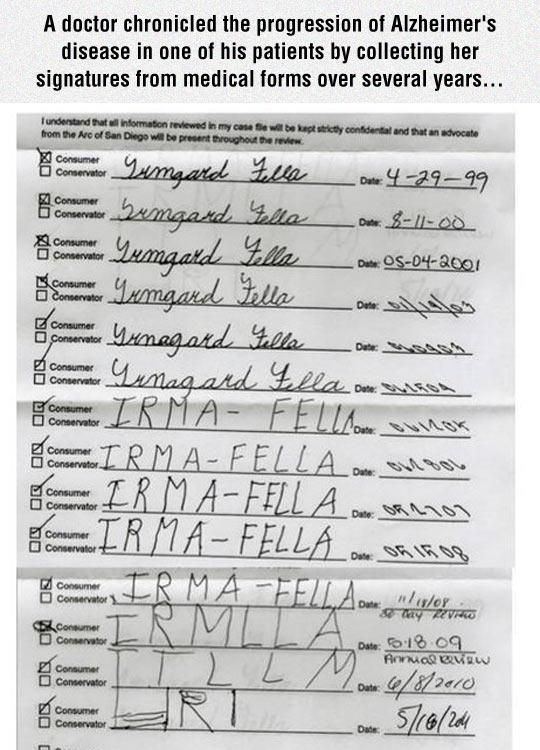 A doctor chronicled the progression of Alzheimer's
disease in one of his patients by collecting her
signatures from medical forms over several years…
I understand that all information reviewed in my case file will be kept strictly confidential and that an advocate
from the Arc of San Diego will be present throughout the review.
Consumer
Conservator Yrmgard Fella Date: 4-29-99
Consumer
Conservator Yrmgard Fella Date: 8-11-00
Consumer
Conservator Yrmgard Fella Date: 05-04-2001
Consumer
Conservator Yrmgard Fella Date:
Consumer
Conservator Yrnagard Fella Date:
Consumer
Conservator Yrnagard Fella Date:
Consumer
Conservator IRMA- FELLA Date:
Consumer
Conservator IRMA-FELLA Date:
Consumer
Conservator IRMA-FELLA Date:
Consumer
Conservator IRMA-FELLA Date:
Consumer
Conservator IRMA-FELLA Date: 11/18/08
30 Day Review
Consumer
Conservator IRMLLA Date: 5-18-09
Annual Review
Consumer
Conservator ITLLM Date: 6/8/2010
Consumer
Conservator RI Date: 5/18/2011